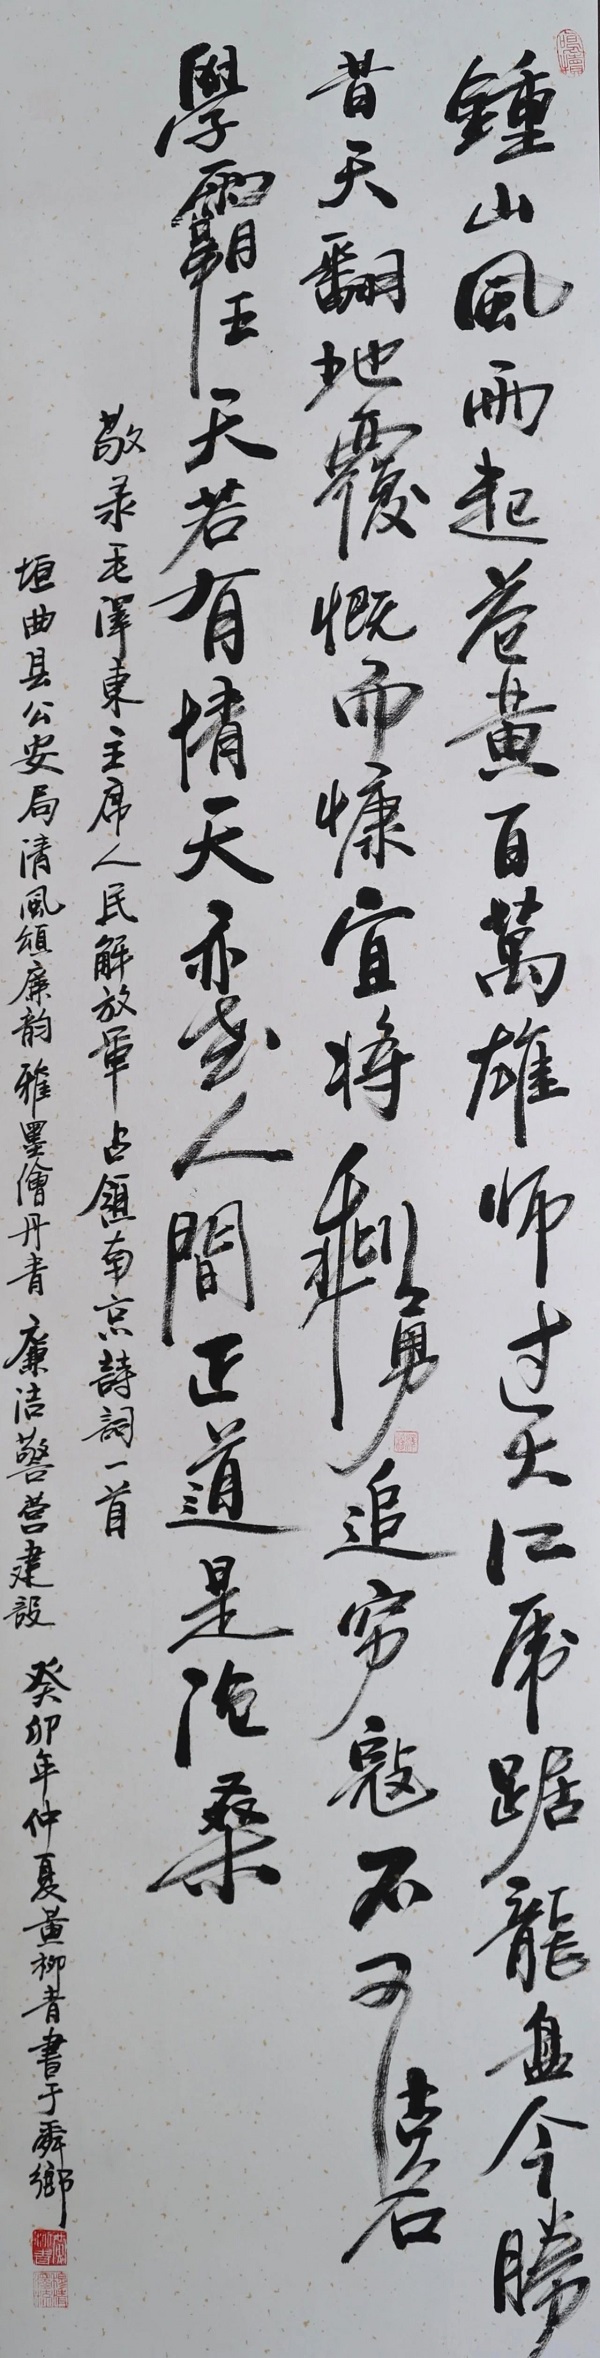 鍾山風雨起苍黄百萬雄师过大江虎踞龍盘今勝
昔天翻地覆慨而慷宜将剩勇追穷寇不可沽名
學霸王天若有情天亦老人間正道是沧桑
敬录毛澤東主席人民解放軍占領南京詩詞一首
垣曲县公安局清風頌廉韵雅墨繪丹青廉洁警营建設
癸卯年仲夏黄柳青書于舜鄉